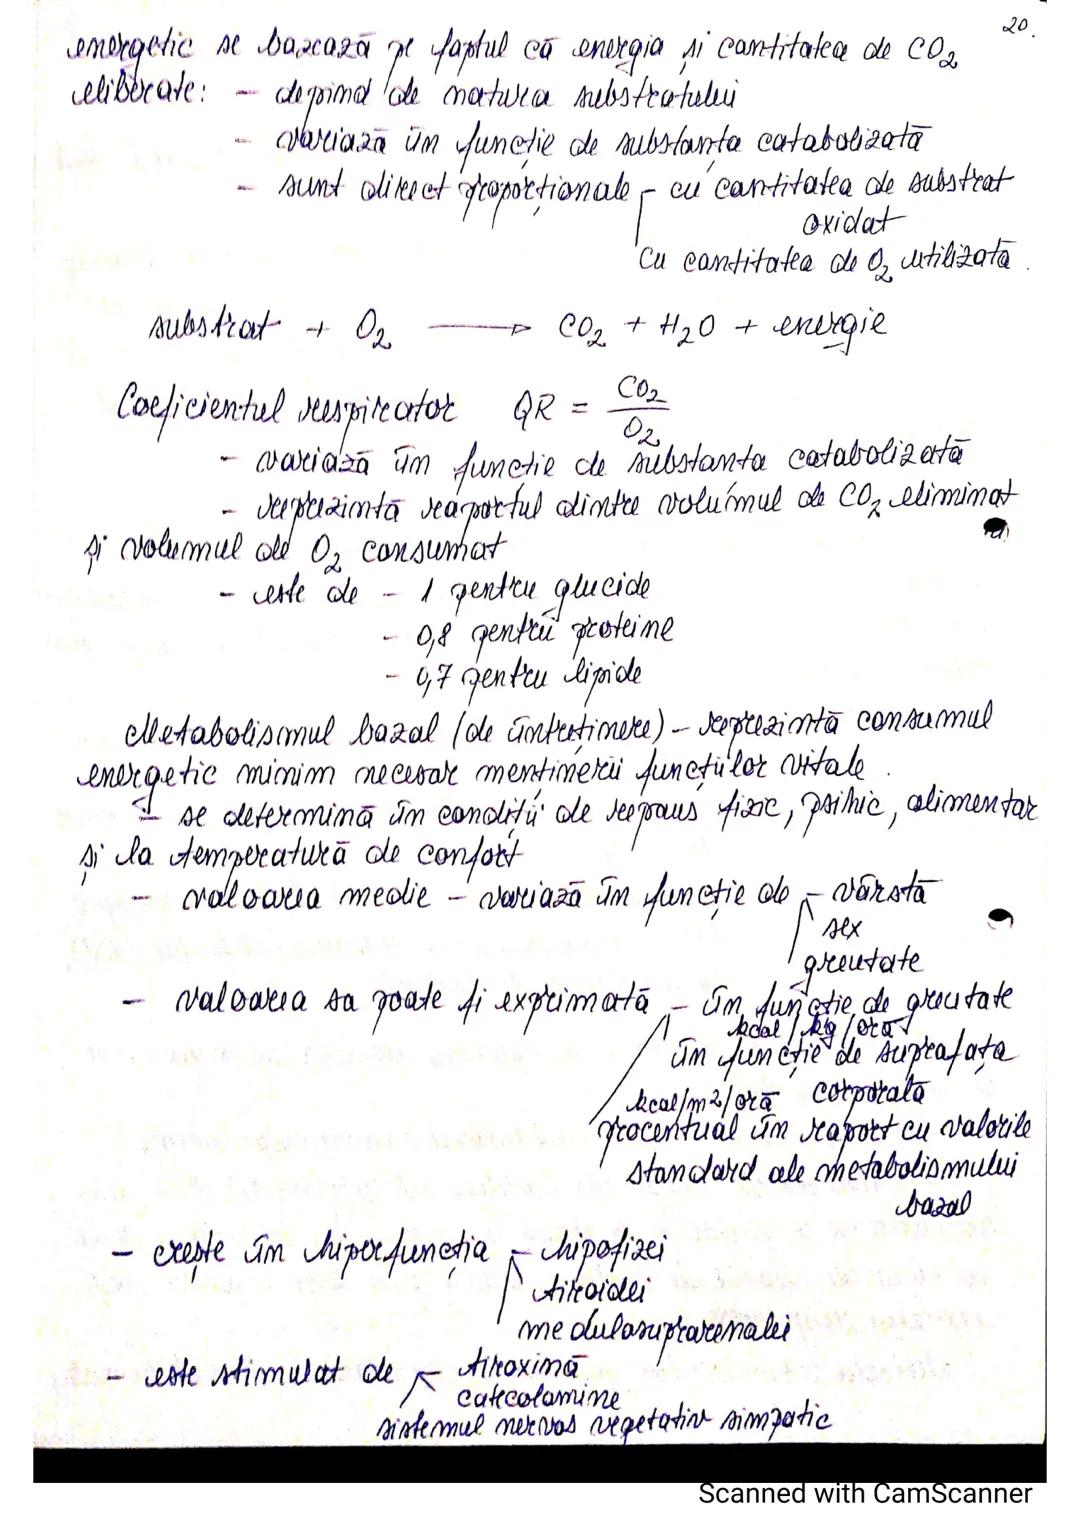 20.
energetic se bazează pe faptul că energia și cantitatea de CO2
eliberate: - depind de natura substratului
- variază în funcție de substanța catabolizată
- sunt direct proporționale - cu cantitatea de substrat
oxidat
cu cantitatea de O2 utilizată.
substrat + O2 → CO2 + H2O + energie
Coeficientul respirator QR = CO2 / O2
- variază în funcție de substanța catabolizată
- reprezintă raportul dintre volumul de CO2 eliminat
și volumul de O2 consumat
- este de - 1 pentru glucide
- 0,8 pentru proteine
- 0,7 pentru lipide
Metabolismul bazal (de întreținere) - reprezintă consumul
energetic minim necesar menținerii funcțiilor vitale.
- se determină în condiții de repaus fizic, psihic, alimentar
și la temperatură de confort
- valoarea medie - variază în funcție de - vârstă
sex
greutate
- valoarea sa poate fi exprimată - în funcție de greutate
kcal/kg/oră
în funcție de suprafața
kcal/m2/oră corporală
procentual în raport cu valorile
standard ale metabolismului
bazal
- crește în hiperfuncția - hipofizei
tiroidei
medulosuprarenalei
- este stimulat de - tiroxină
catecolamine
sistemul nervos vegetativ simpatic
Scanned with CamScanner